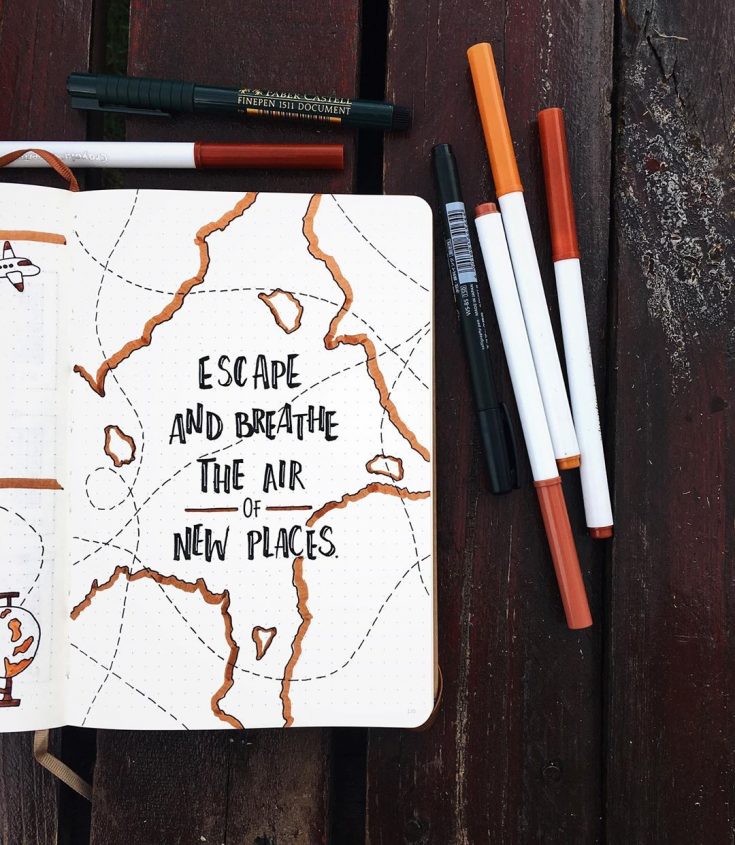 FABER CASTELL
FINEPEN 1511 DOCUMENT
Crayola
ESCAPE
AND BREATHE
THE AIR
OF
NEW PLACES.